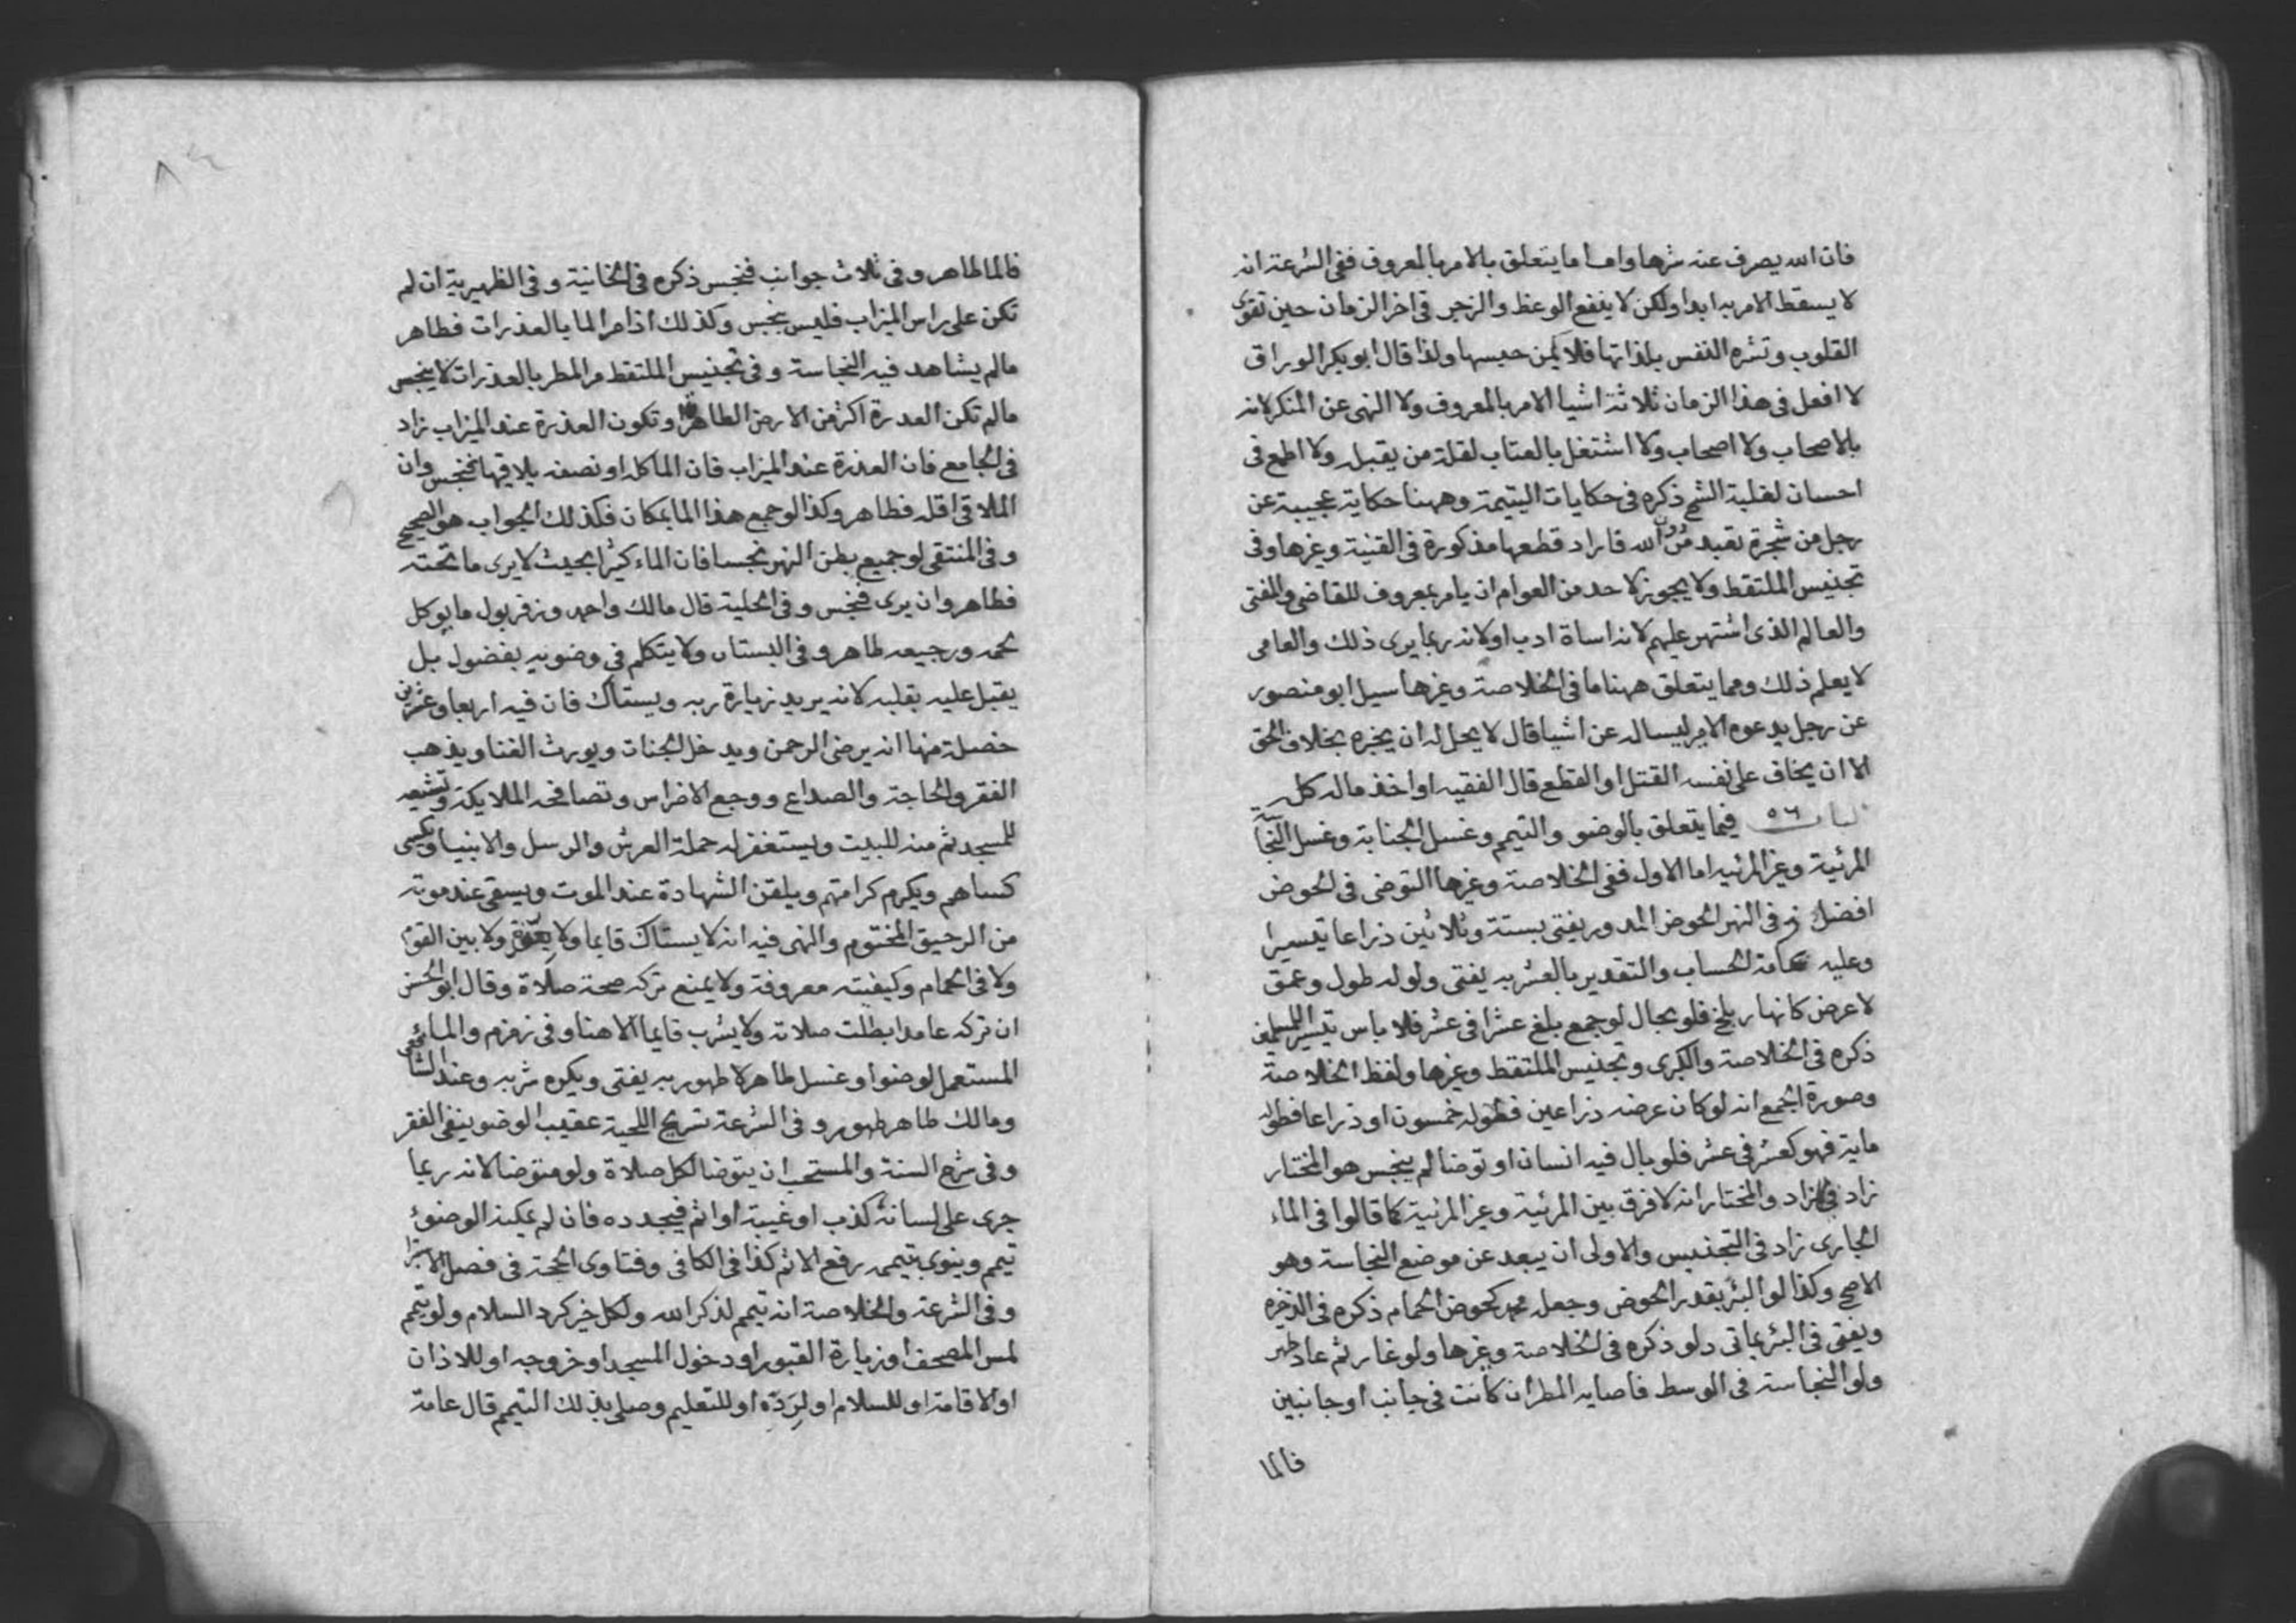 فان الله يصرف عنه شرها واما ما يتعلق بالامر بالمعروف ففى الشرعة انه
لا يسقط الامر به ابدا ولكن لا ينفع الوعظ والزجر فى اخر الزمان حين تقوى
القلوب وتشره النفس بلذاتها فلا يمكن حبسها ولذا قال ابو بكر الوراق
لا افعل فى هذا الزمان ثلاثة اشيا الامر بالمعروف ولا النهى عن المنكر لانه
بالاصحاب ولا اصحاب ولا اشتغل بالعتاب لقلة من يقبل ولا اطمع فى
احسان لغلبة الشح ذكره فى حكايات اليتيمة وههنا حكاية عجيبة عن
رجل من شجرة تعبد من دون الله فاراد قطعها مذكورة فى القنية وغيرها وفى
تجنيس الملتقط ولا يجوز لاحد من العوام ان يامر بمعروف للقاضى والمفتى
والعالم الذى اشتهر عليهم لانه اساة ادب او لانه ربما يرى ذلك والعامى
لا يعلم ذلك ومما يتعلق ههنا ما فى الخلاصة وغيرها سيل ابو منصور
عن رجل يدعوه الامير ليساله عن اشيا قال لا يحل له ان يخبره بخلاف الحق
الا ان يخاف على نفسه القتل او القطع قال الفقيه او اخذ ماله كله
٥٦ فيما يتعلق بالوضو والتيمم وغسل الجنابة وغسل النجاسة
المرئية وغير المرئيه اما الاول ففى الخلاصة وغيرها التوضى فى الحوض
افضل منه فى النهر الحوض المدور يفتى بستة وثلاثين ذراعا تيسيرا
وعليه عامة الحساب والتقدير بالعشر به يفتى ولو له طول وعمق
لا عرض كانهار بلخ فلو بحال لو جمع بلغ عشرا فى عشر فلا باس تيسيرا للمسلمين
ذكره فى الخلاصة والكبرى وتجنيس الملتقط وغيرها ولفظ الخلاصة
وصورة الجمع انه لو كان عرضه ذراعين فطوله خمسون او ذراعا فطوله
ماية فهو كعشر فى عشر فلو بال فيه انسان او توضا لم ينجس هو المختار
زاد فى الزاد والمختار انه لا فرق بين المرئية وغير المرئية كما قالوا فى الماء
الجارى زاد فى التجنيس والاولى ان يبعد عن موضع النجاسة وهو
الاصح وكذا لو البئر بقدر الحوض وجعل محمد كحوض الحمام ذكره فى الذخيرة
ويفتى فى البئر بماتى دلو ذكره فى الخلاصة وغيرها ولو غار ثم عاد طهر
ولو النجاسة فى الوسط فاصابه المطر ان كانت فى جانب او جانبين
فالما
فالما طاهر وفى ثلاث جوانب فنجس ذكره فى الخانية وفى الظهيرية ان لم
تكن على راس الميزاب فليس بنجس وكذلك اذا مر الما بالعذرات فطاهر
ما لم يشاهد فيه النجاسة وفى تجنيس الملتقط مر المطر بالعذرات لا ينجس
ما لم تكن العدرة اكثر من الارض الطاهرة او تكون العذرة عند الميزاب زاد
فى الجامع فان العذرة عند الميزاب فان الما كله او نصفه يلاقيها فنجس وان
الملاقى اقله فطاهر وكذا لو جمع هذا الما بمكان فكذلك الجواب هو الصحيح
وفى المنتقى لو جميع بطن النهر نجسا فان الماء كثيرا بحيث لا يرى ما تحته
فطاهر وان يرى فنجس وفى الحلية قال مالك واحمد وزفر بول ما يوكل
لحمه ورجيعه طاهر وفى البستان ولا يتكلم فى وضويه بفضول بل
يقبل عليه بقلبه لانه يريد زيارة ربه ويستاك فان فيه اربعا وعشرين
خصلة منها انه يرضى الرحمن ويدخل الجنات ويورث الغنا ويذهب
الفقر والحاجة والصداع ووجع الاضراس وتصافحه الملايكة وتشيعه
للمسجد ثم منه للبيت ويستغفر له حملة العرش والرسل والانبيا ويكسى
كساهم ويكرم كرامتهم ويلقن الشهادة عند الموت ويسقى عند موته
من الرحيق المختوم والنهى فيه انه لا يستاك قايما ولا ولا بين القوم
ولا فى الحمام وكيفيته معروفة ولا يمنع تركه صحة صلاة وقال ابو الحسن
ان تركه عامدا بطلت صلاته ولا يشرب قايما الا هنا وفى زمزم والما
المستعمل لوضوا وغسل طاهر لا طهور به يفتى ويكره شربه وعند الشافعى
ومالك طاهر طهور وفى الشرعة تسريح اللحية عقيب الوضو ينفى الفقر
وفى شرح السنة والمستحب ان يتوضا لكل صلاة ولو متوضا لانه ربما
جرى على لسانه كذب او غيبة او اثم فيجدده فان لم يمكنه الوضوء
تيمم وينوى بتيممه رفع الاثم كذا فى الكافى وفتاوى الحجة فى فصل
وفى الشرعة والخلاصة انه تيمم لذكر الله ولكل خير كرد السلام ولو تيمم
لمس المصحف او زيارة القبور او دخول المسجد او خروجه او للاذان
او الاقامة او للسلام او لرده او للتعليم وصلى بذلك التيمم قال عامة